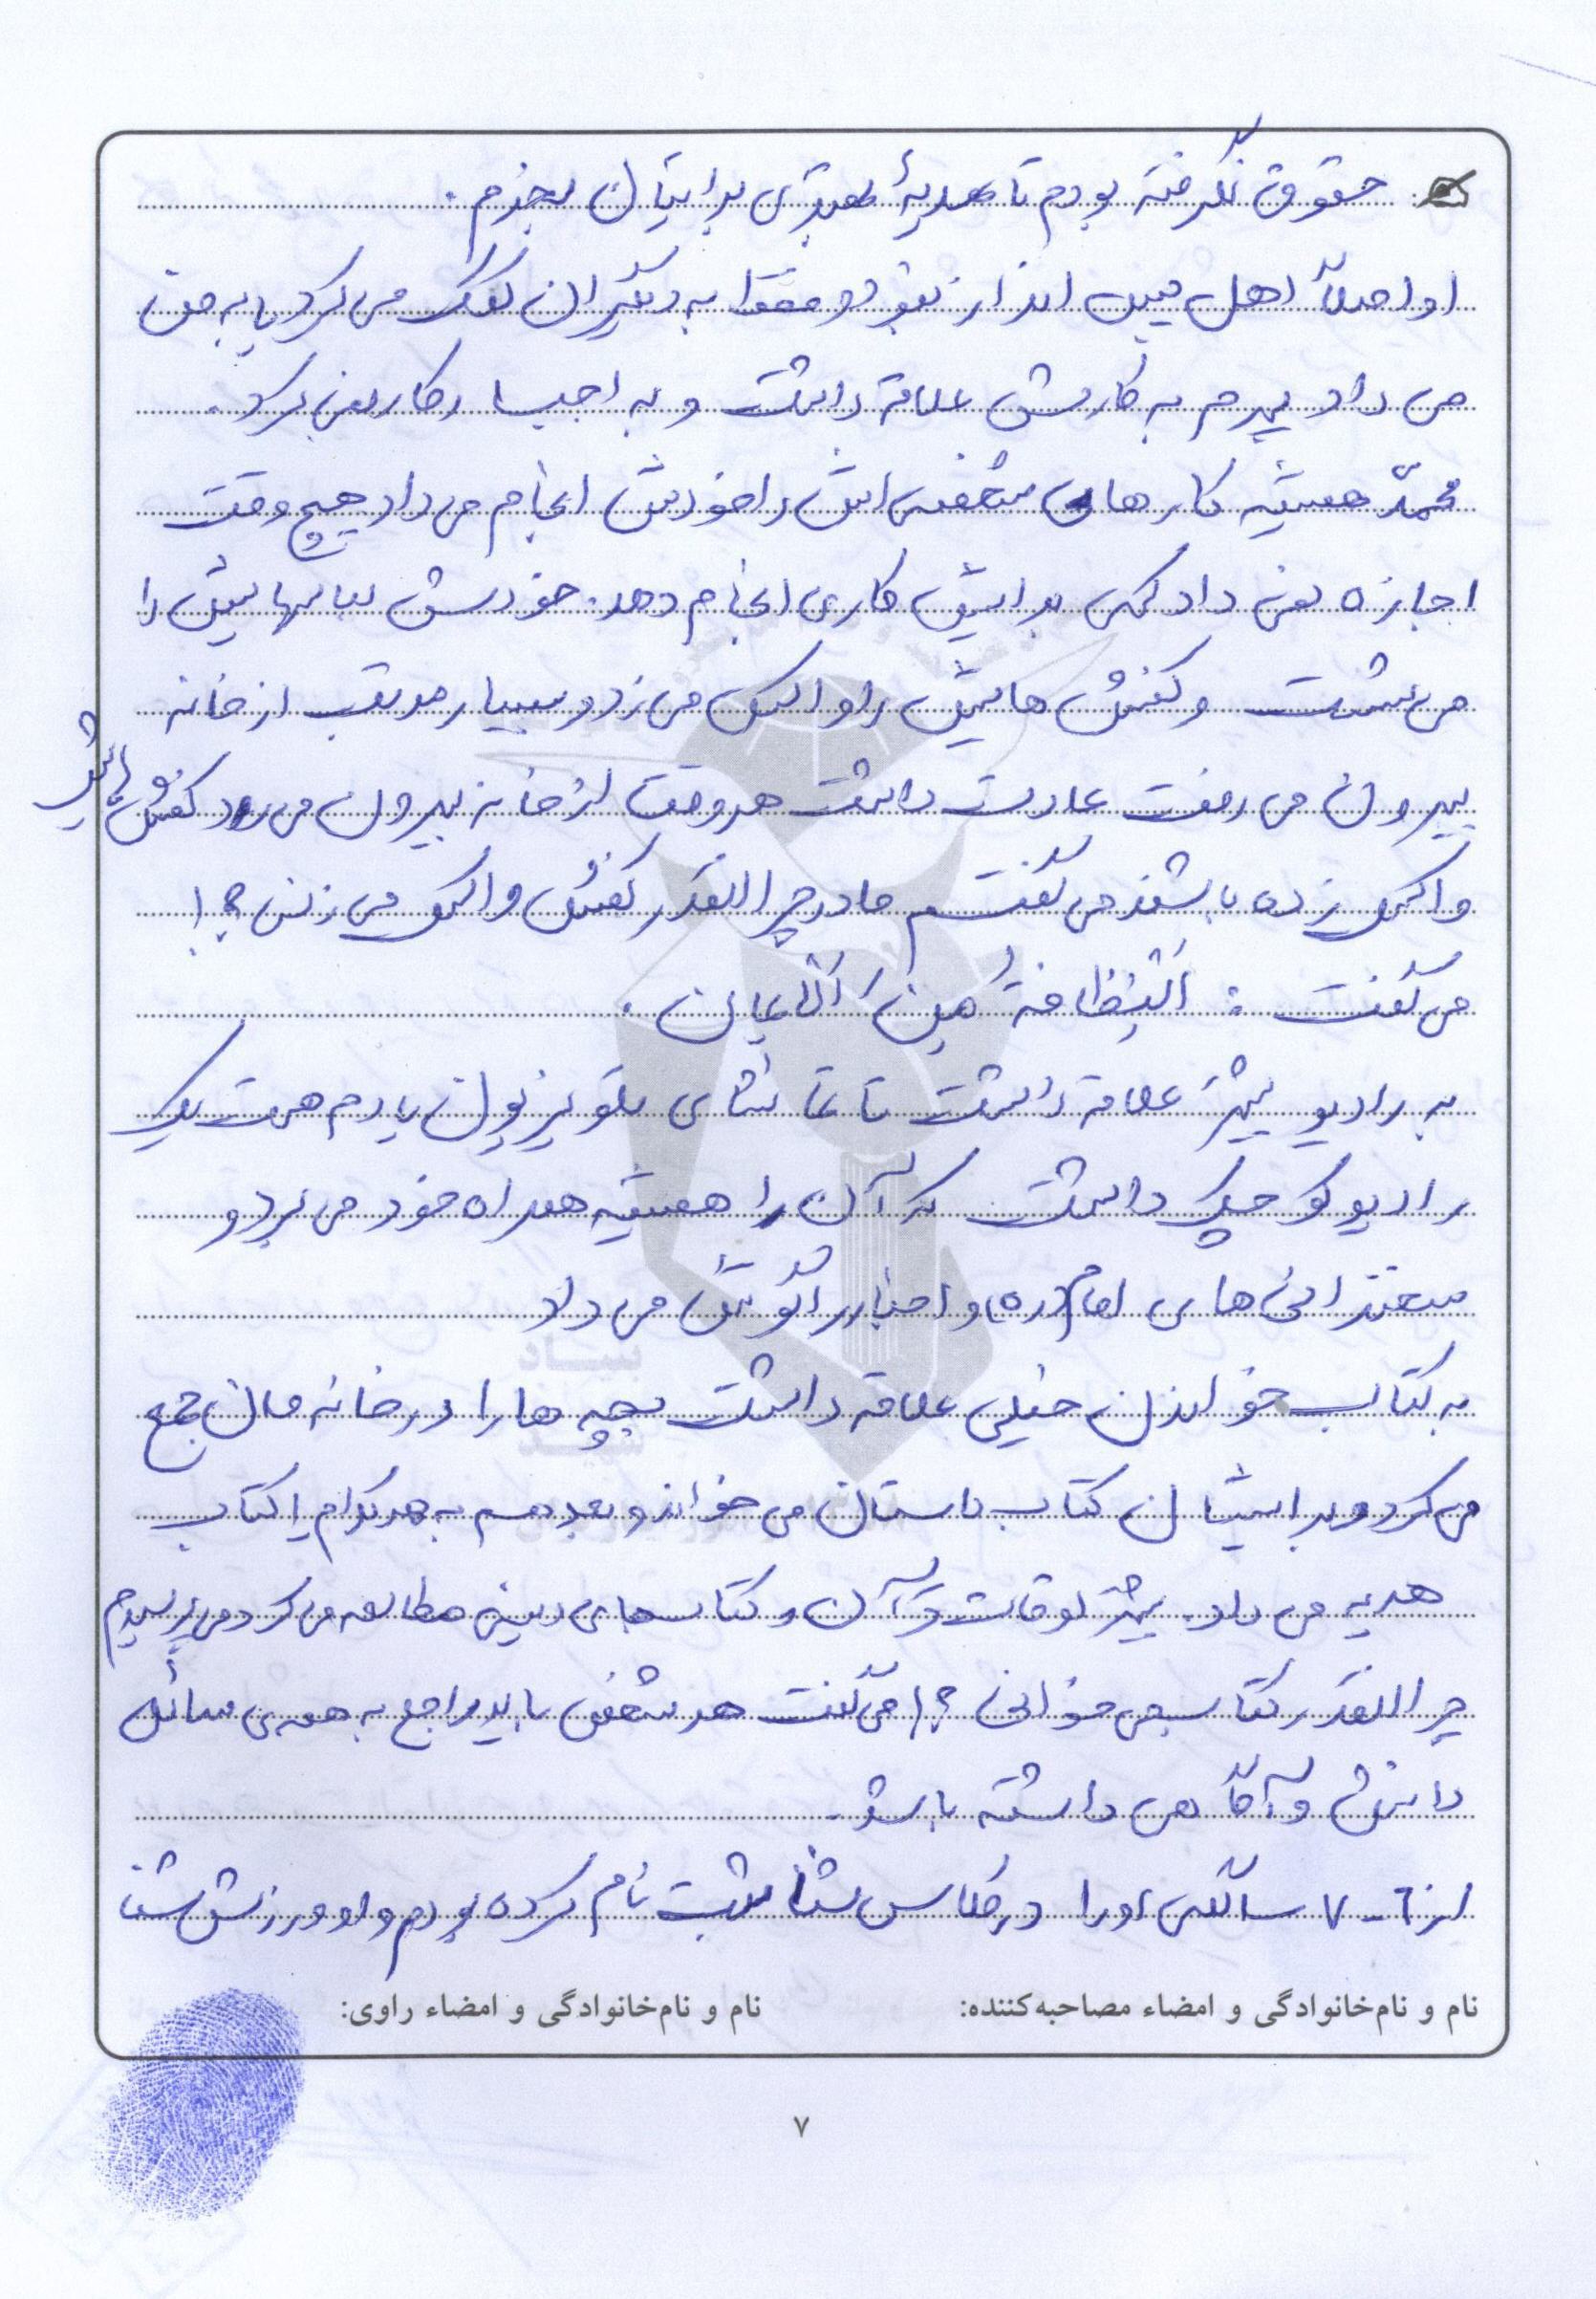 حقوق نگرفته بودم تا هدیهٔ بهتری برایتان بخرم.
او اصلاً اهل پس انداز نبود و فقط به دیگران کمک می کرد یا به من
می داد پسرم به کارش علاقه داشت و به اجبار کار نمی کرد.
محمد همیشه کارهای شخصی اش را خودش انجام می داد هیچ وقت
اجازه نمی داد کسی برایش کاری انجام دهد. خودش لباسهایش را
می شست و کفش هایش را واکس می زد و بسیار مرتب از خانه
بیرون می رفت عادت داشت هر وقت از خانه بیرون می رود کفش هایش
واکس زده باشد می گفتم مادر چرا اینقدر کفش واکس می زنی؟!
می گفت: اَلنِّظافَةُ مِنَ اَلایمان.
به رادیو بیشتر علاقه داشت تا تماشای تلویزیون یادم هست یک
رادیو کوچک داشت که آن را همیشه همراه خود می برد و
سخنرانی های امام (ره) و اخبار را گوش می داد
به کتاب خواندن خیلی علاقه داشت بچه ها را در خانه مان جمع
می کرد و برایشان کتاب داستان می خواند و بعد هم به هر کدام یک کتاب
هدیه می داد. بیشتر اوقات قرآن و کتابهای دینی مطالعه می کرد می پرسیدم
چرا اینقدر کتاب می خوانی؟! می گفت هر شخصی باید راجع به همه ی مسائل
دانش و آگاهی داشته باشد.
از ۶-۷ سالگی او را در کلاس شنا ثبت نام کرده بودم و او ورزش شنا
نام و نام‌خانوادگی و امضاء مصاحبه‌کننده:
نام و نام‌خانوادگی و امضاء راوی:
۷